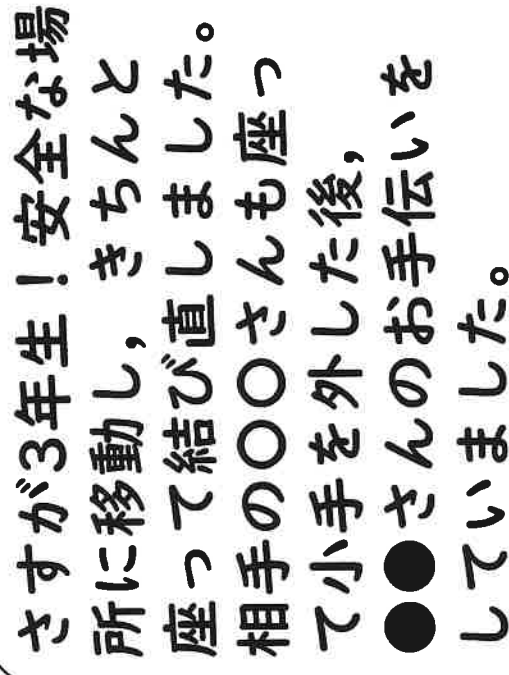 さすが3年生！安全な場
所に移動し，きちんと
座って結び直しました。
相手の〇〇〇さんも座っ
て小手を外した後，
●●さんのお手伝いを
していました。